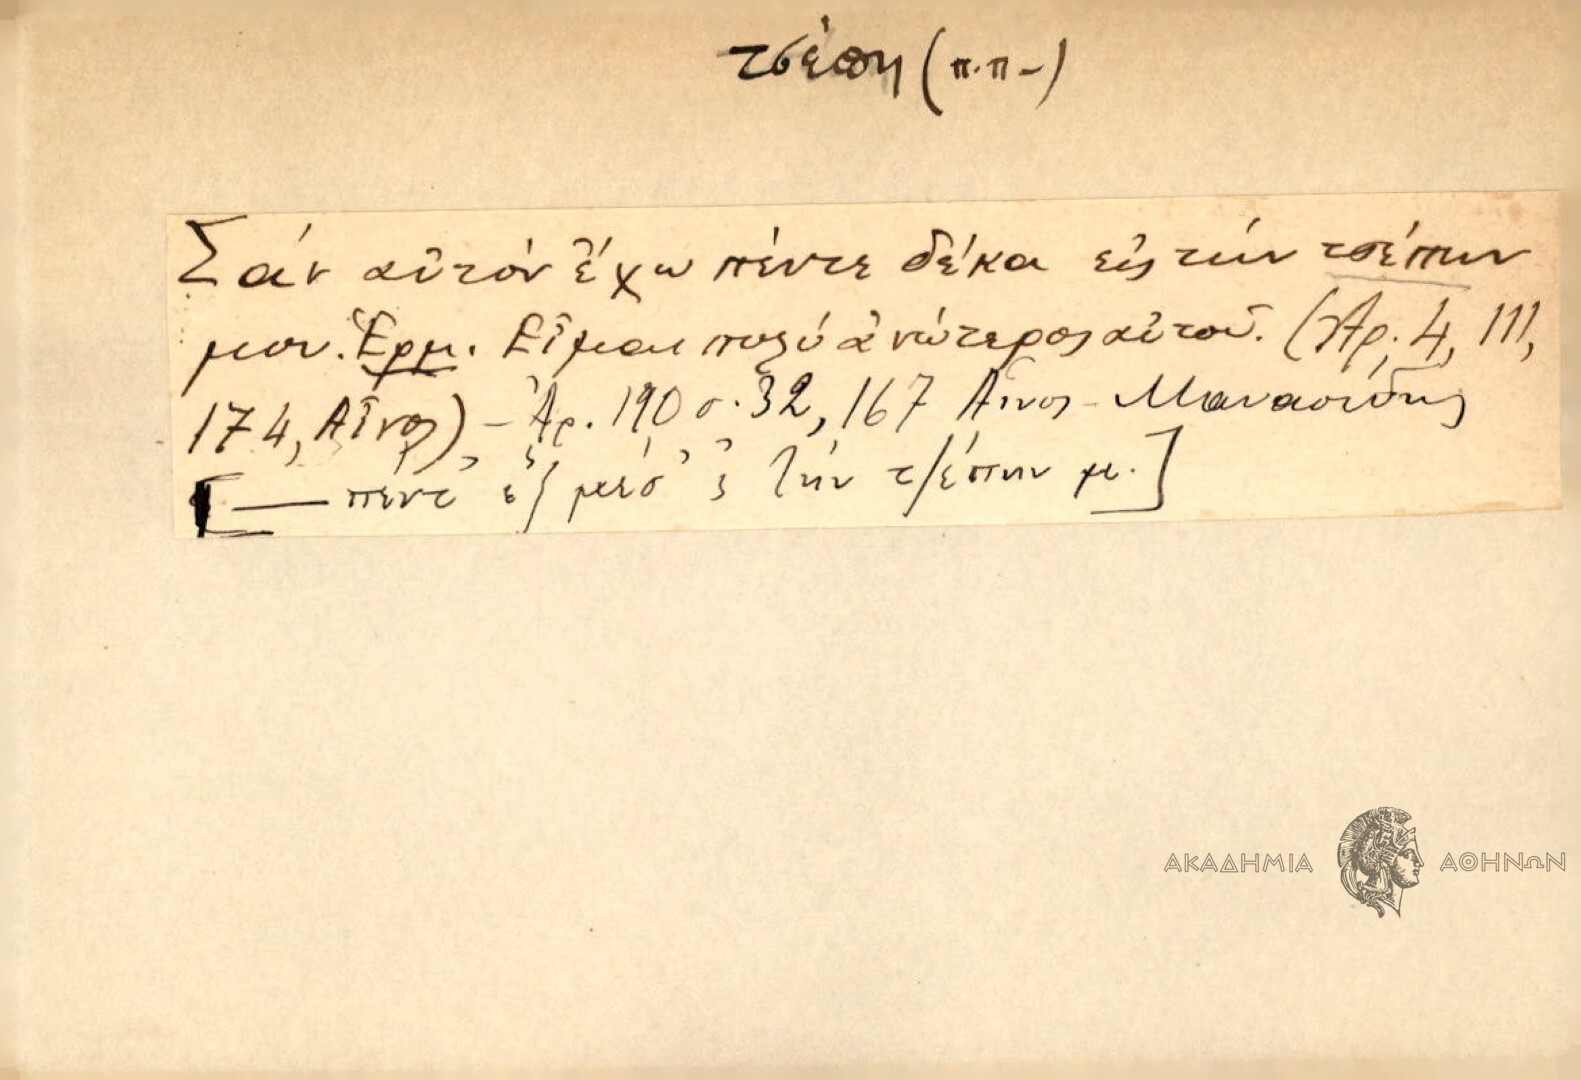 τσέπη (π.π-)
Σάν αὐτόν ἔχω πέντε δέκα εἰς τήν τσέπην
μου. Ἑρμ. Εἶμαι πολύ ἀνώτερος αὐτοῦ. (Ἀρ. 4, 111,
174, Αἶνος) - Ἀρ. 190 σ. 32, 167 Αἶνος - Μανασείδης
[— πέντ' ἕξ μέσ' ς τήν τσέπην μ.]
ΑΚΑΔΗΜΙΑ ΑΘΗΝΩΝ